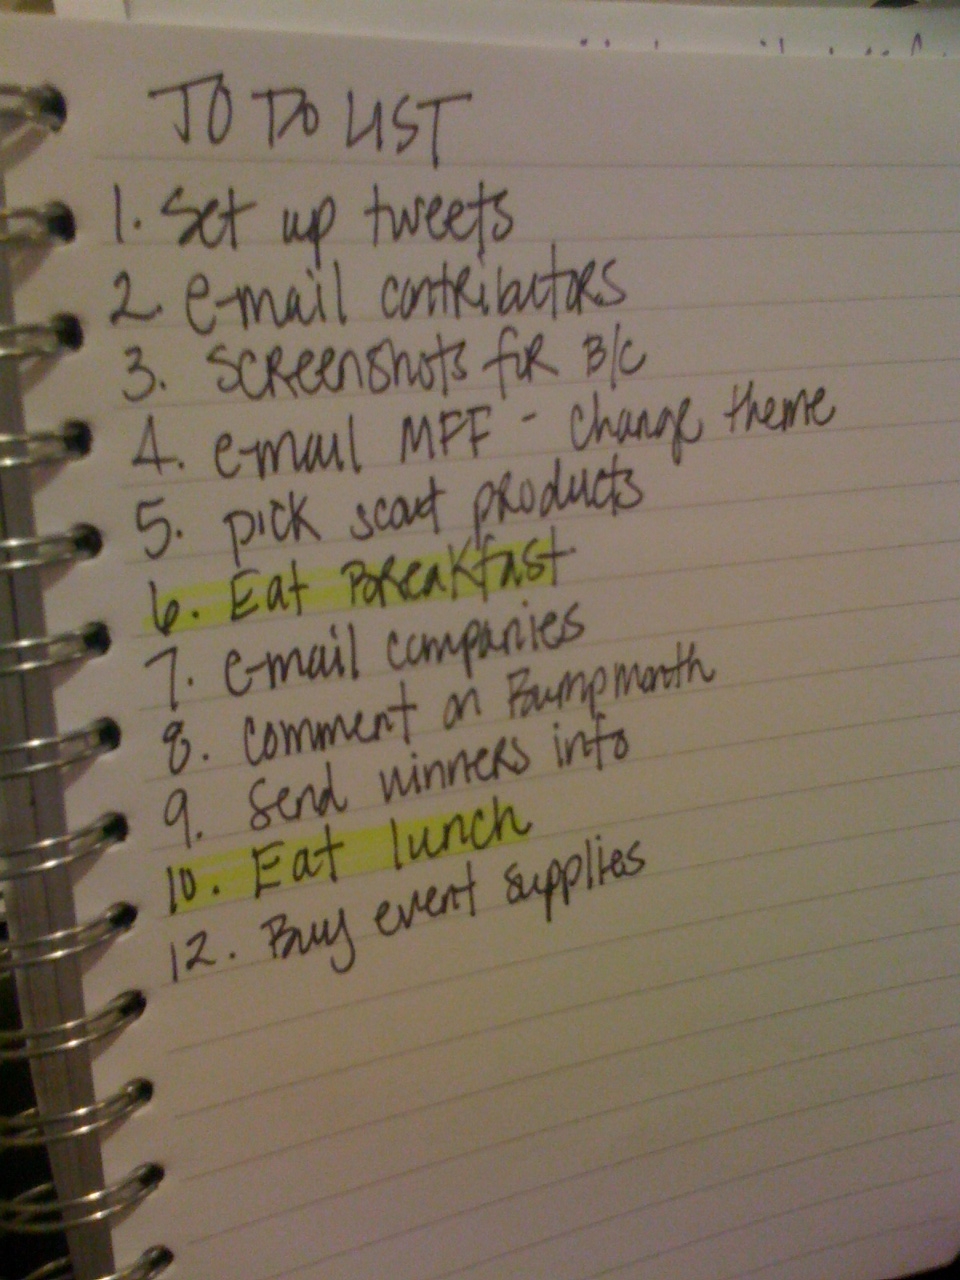 TO DO LIST
1. Set up tweets
2. e-mail contributors
3. Screenshots for B/c
4. e-mail MFF - change theme
5. pick scout products
6. Eat Breakfast
7. e-mail companies
8. Comment on Bumpmonth
9. Send winners info
10. Eat lunch
12. Buy event supplies